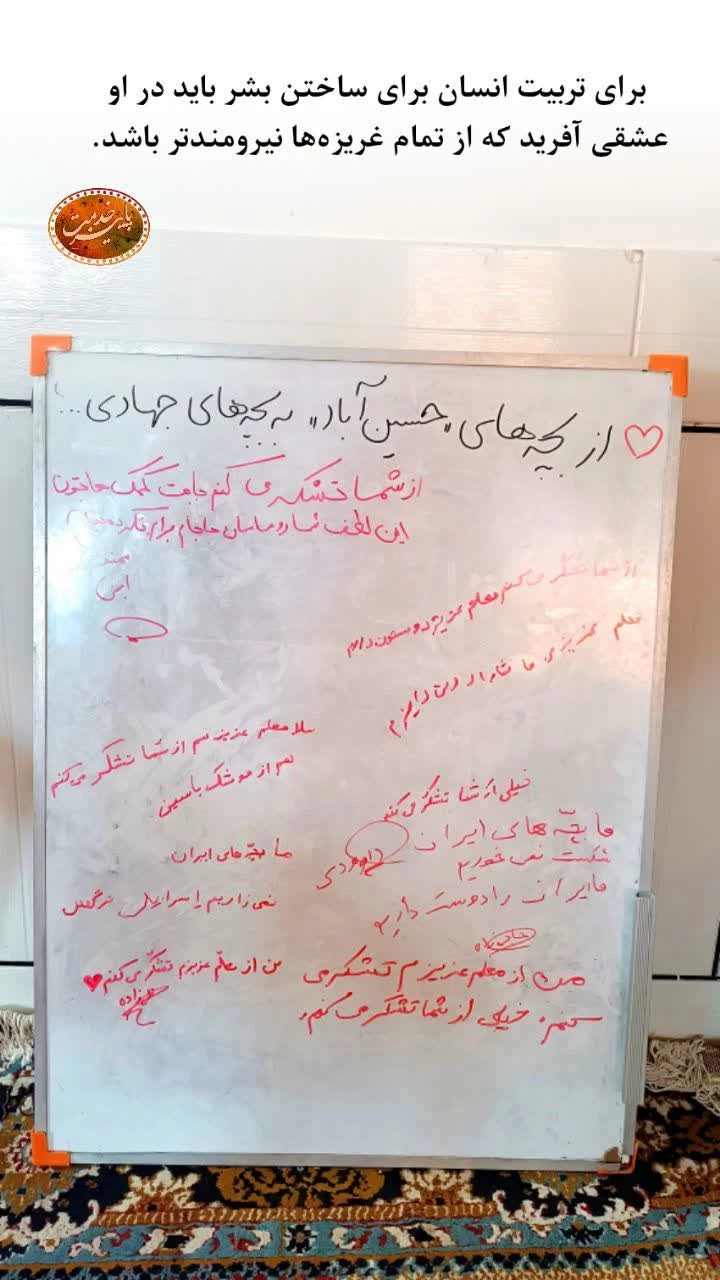 برای تربیت انسان برای ساختن بشر باید در او
عشقی آفرید که از تمام غریزه‌ها نیرومندتر باشد.
پاییز خدمت
از بچه‌های "حسین آباد" به بچه‌های جهادی...
از شما تشکر می کنم بابت کمک هاتون
این لطف شما رو
از شما تشکر می کنم معلم عزیز دوستون دارم
معلم عزیزی ما شما را دوس داریم
سلام معلم عزیزم از شما تشکر می کنم
بعد از موشک یاسین
خیلی از شما تشکر می کنم
ما بچّه های ایران
شکست نمی خوریم
ما ایران را دوست داریم
ما بچّه های ایران
نمی زاریم اسراییل نرگس
من از معلّم عزیزم تشکّر می کنم
من از معلم عزیزم تشکر می
کنم. خیلی از شما تشکر می کنم.